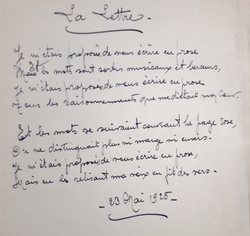 La Lettre.
Je m'étais proposé de vous écrire en prose
Mais les mots sont sortis musicaux et berceurs,
Je m'étais proposé de vous écrire en prose
Tous les raisonnements que me dictait mon cœur.
Et les mots se suivaient couvrant la page rose,
On ne distinguait plus ni marge ni envers.
Je m'étais proposé de vous écrire en prose,
Mais en les relisant ma veux en fit des vers.
23 Mai 1925